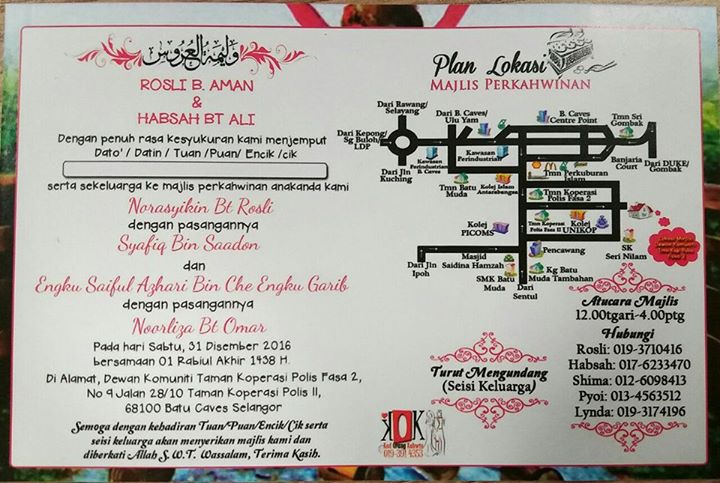 وليمة العروس
ROSLI B. AMAN
&
HABSAH BT ALI
Dengan penuh rasa kesyukuran kami menjemput
Dato' / Datin / Tuan /Puan/ Encik /cik
serta sekeluarga ke majlis perkahwinan anakanda kami
Norasyikin Bt Rosli
dengan pasangannya
Syafiq Bin Saadon
dan
Engku Saiful Azhari Bin Che Engku Garib
dengan pasangannya
Noorliza Bt Omar
Pada hari Sabtu, 31 Disember 2016
bersamaan 01 Rabiul Akhir 1438 H.
Di Alamat, Dewan Komuniti Taman Koperasi Polis Fasa 2,
No 9 Jalan 28/10 Taman Koperasi Polis II,
68100 Batu Caves Selangor
Semoga dengan kehadiran Tuan/Puan/Encik/Cik serta
seisi keluarga akan menyerikan majlis kami dan
diberkati Allah S.W.T. Wassalam, Terima Kasih.
Plan Lokasi
MAJLIS PERKAHWINAN
Dari Rawang/
Selayang
Dari B. Caves/
Ulu Yam
B. Caves
Centre Point
Tmn Sri
Gombak
Dari Kepong/
Sg Buloh/
LDP
Kawasan
Perindustrian
B. Caves
Kawasan
Perindustrian
Banjaria
Court
Dari DUKE/
Gombak
Dari Jln
Kuching
Tmn Batu
Muda
Kolej Islam
Antarabangsa
Tmn Perkuburan
Islam
Tmn Koperasi
Polis Fasa 2
Kolej
PICOMS
Tmn Koperasi
Polis Fasa II
Kolej
UNIKOP
Pencawang
SK
Seri Nilam
Dari Jln
Ipoh
Masjid
Saidina Hamzah
SMK Batu
Muda
Kg Batu
Muda Tambahan
Dari
Sentul
Atucara Majlis
12.00tgari-4.00ptg
Hubungi
Rosli: 019-3710416
Habsah: 017-6233470
Shima: 012-6098413
Pyoi: 013-4563512
Lynda: 019-3174196
Turut Mengundang
(Seisi Keluarga)
KOK
Kad Orang Kahwin
019-391 4353